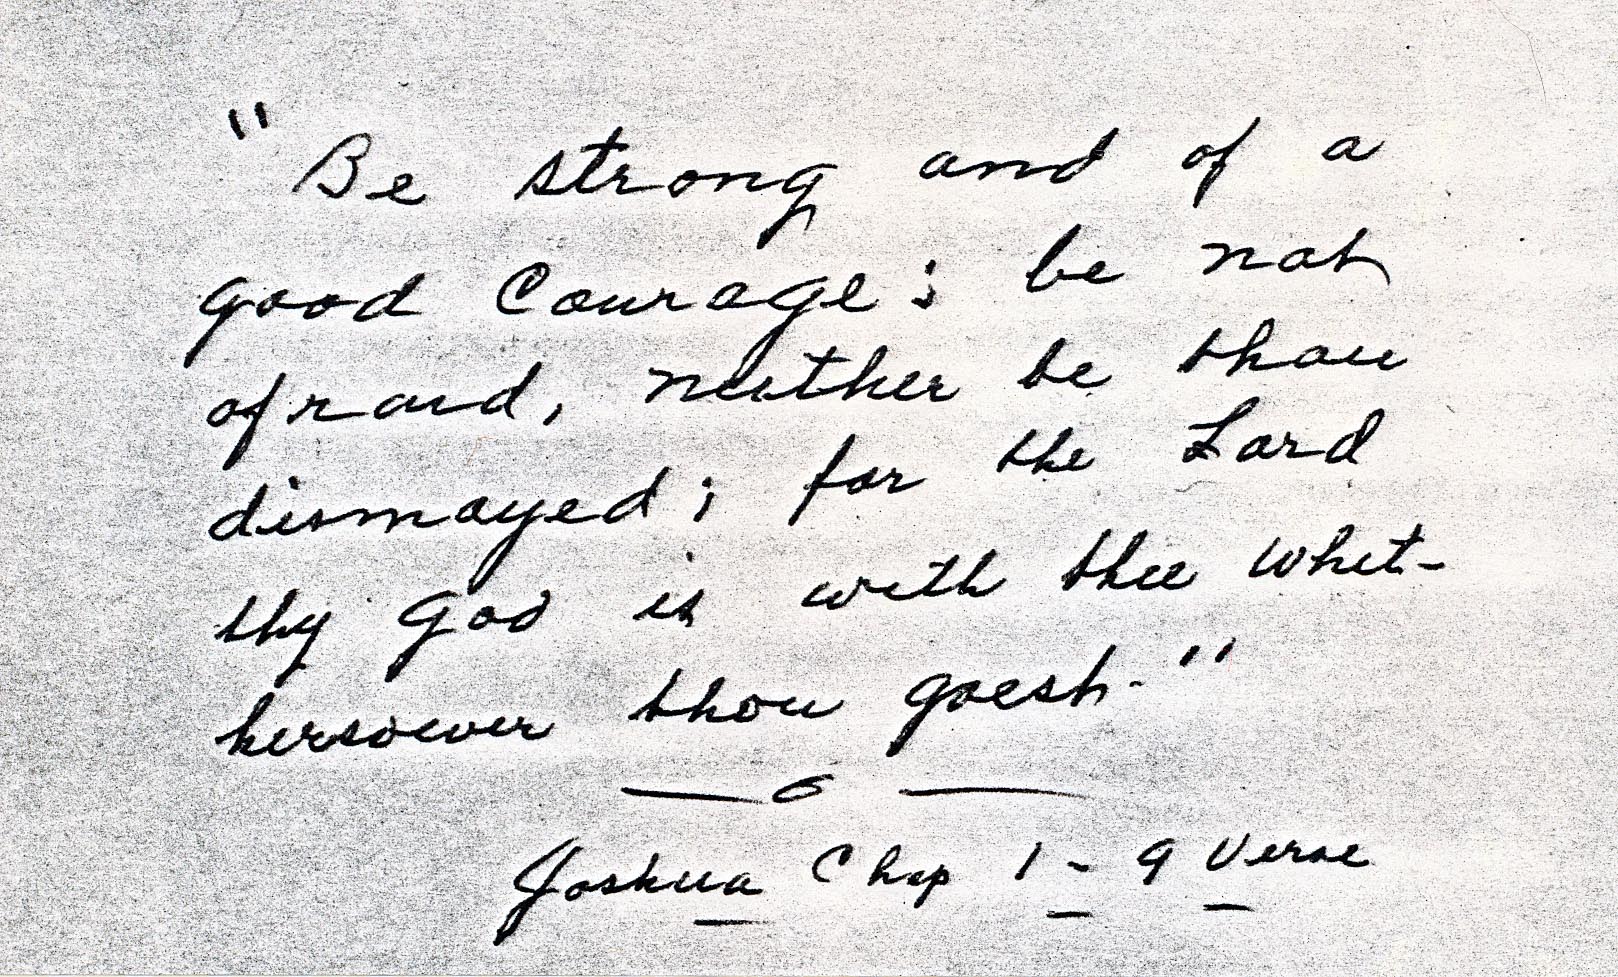 "Be strong and of a
good Courage; be not
afraid, neither be thou
dismayed; for the Lord
thy God is with thee whit-
hersoever thou goest."
Joshua Chap 1 - 9 Verse